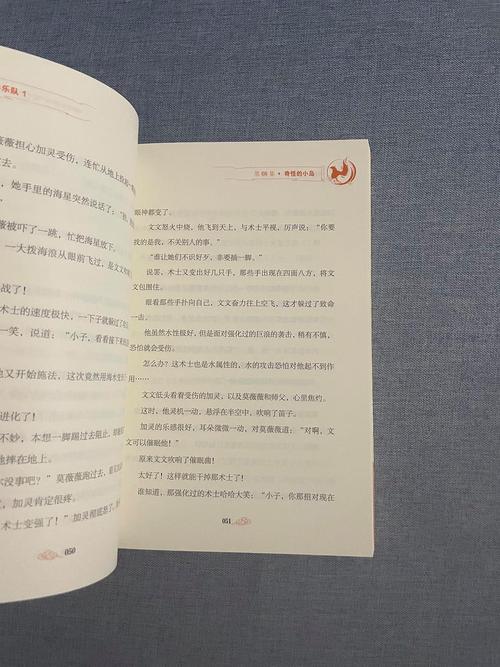 乐队 1
薇薇担心加灵受伤，连忙从地上
去。
，她手里的海星突然说话了：
薇被吓了一跳，忙把海星放下。
一大拨海浪从眼前飞过，是文文
战了！
术士的速度极快，一下子就躲过了
一笑，说道：“小子，看看接下来
也又开始施法，这次竟然用海水变
进化了！
不妙，本想一脚踢过去阻止，
他摔在地上。
尔没事吧？”莫薇薇跑过去，着
，加灵肯定很疼。
术士变强了！”加灵彻底怒了，
050
第08集·奇怪的小岛
眼神都变了。
文文怒火中烧，他飞到天上，与术士平视，厉声说：“你要
找的是我，不关别人的事。”
“谁让她们不识好歹，非要插一脚。”
说罢，术士又变出好几只手，那些手出现在四面八方，将文
文包围住。
眼看那些手扑向自己，文文奋力往上空飞，这才躲过了致命
一击。
他虽然水性极好，但是面对强化过的巨浪的袭击，稍有不慎，
恐怕就会受伤。
怎么办？这术士也是水属性的，水的攻击恐怕对他起不到作
用……
文文低头看着受伤的加灵，以及莫薇薇和师父，心里焦灼。
这时，他灵机一动，悬浮在半空中，吹响了笛子。
加灵的乐感很好，耳朵微微一动，对莫薇薇道：“对啊，文
文可以催眠他！”
原来文文吹响了催眠曲！
太好了！这样就能干掉那术士了！
谁知道，那强化过的术士哈哈大笑：“小子，你那招对现在
051